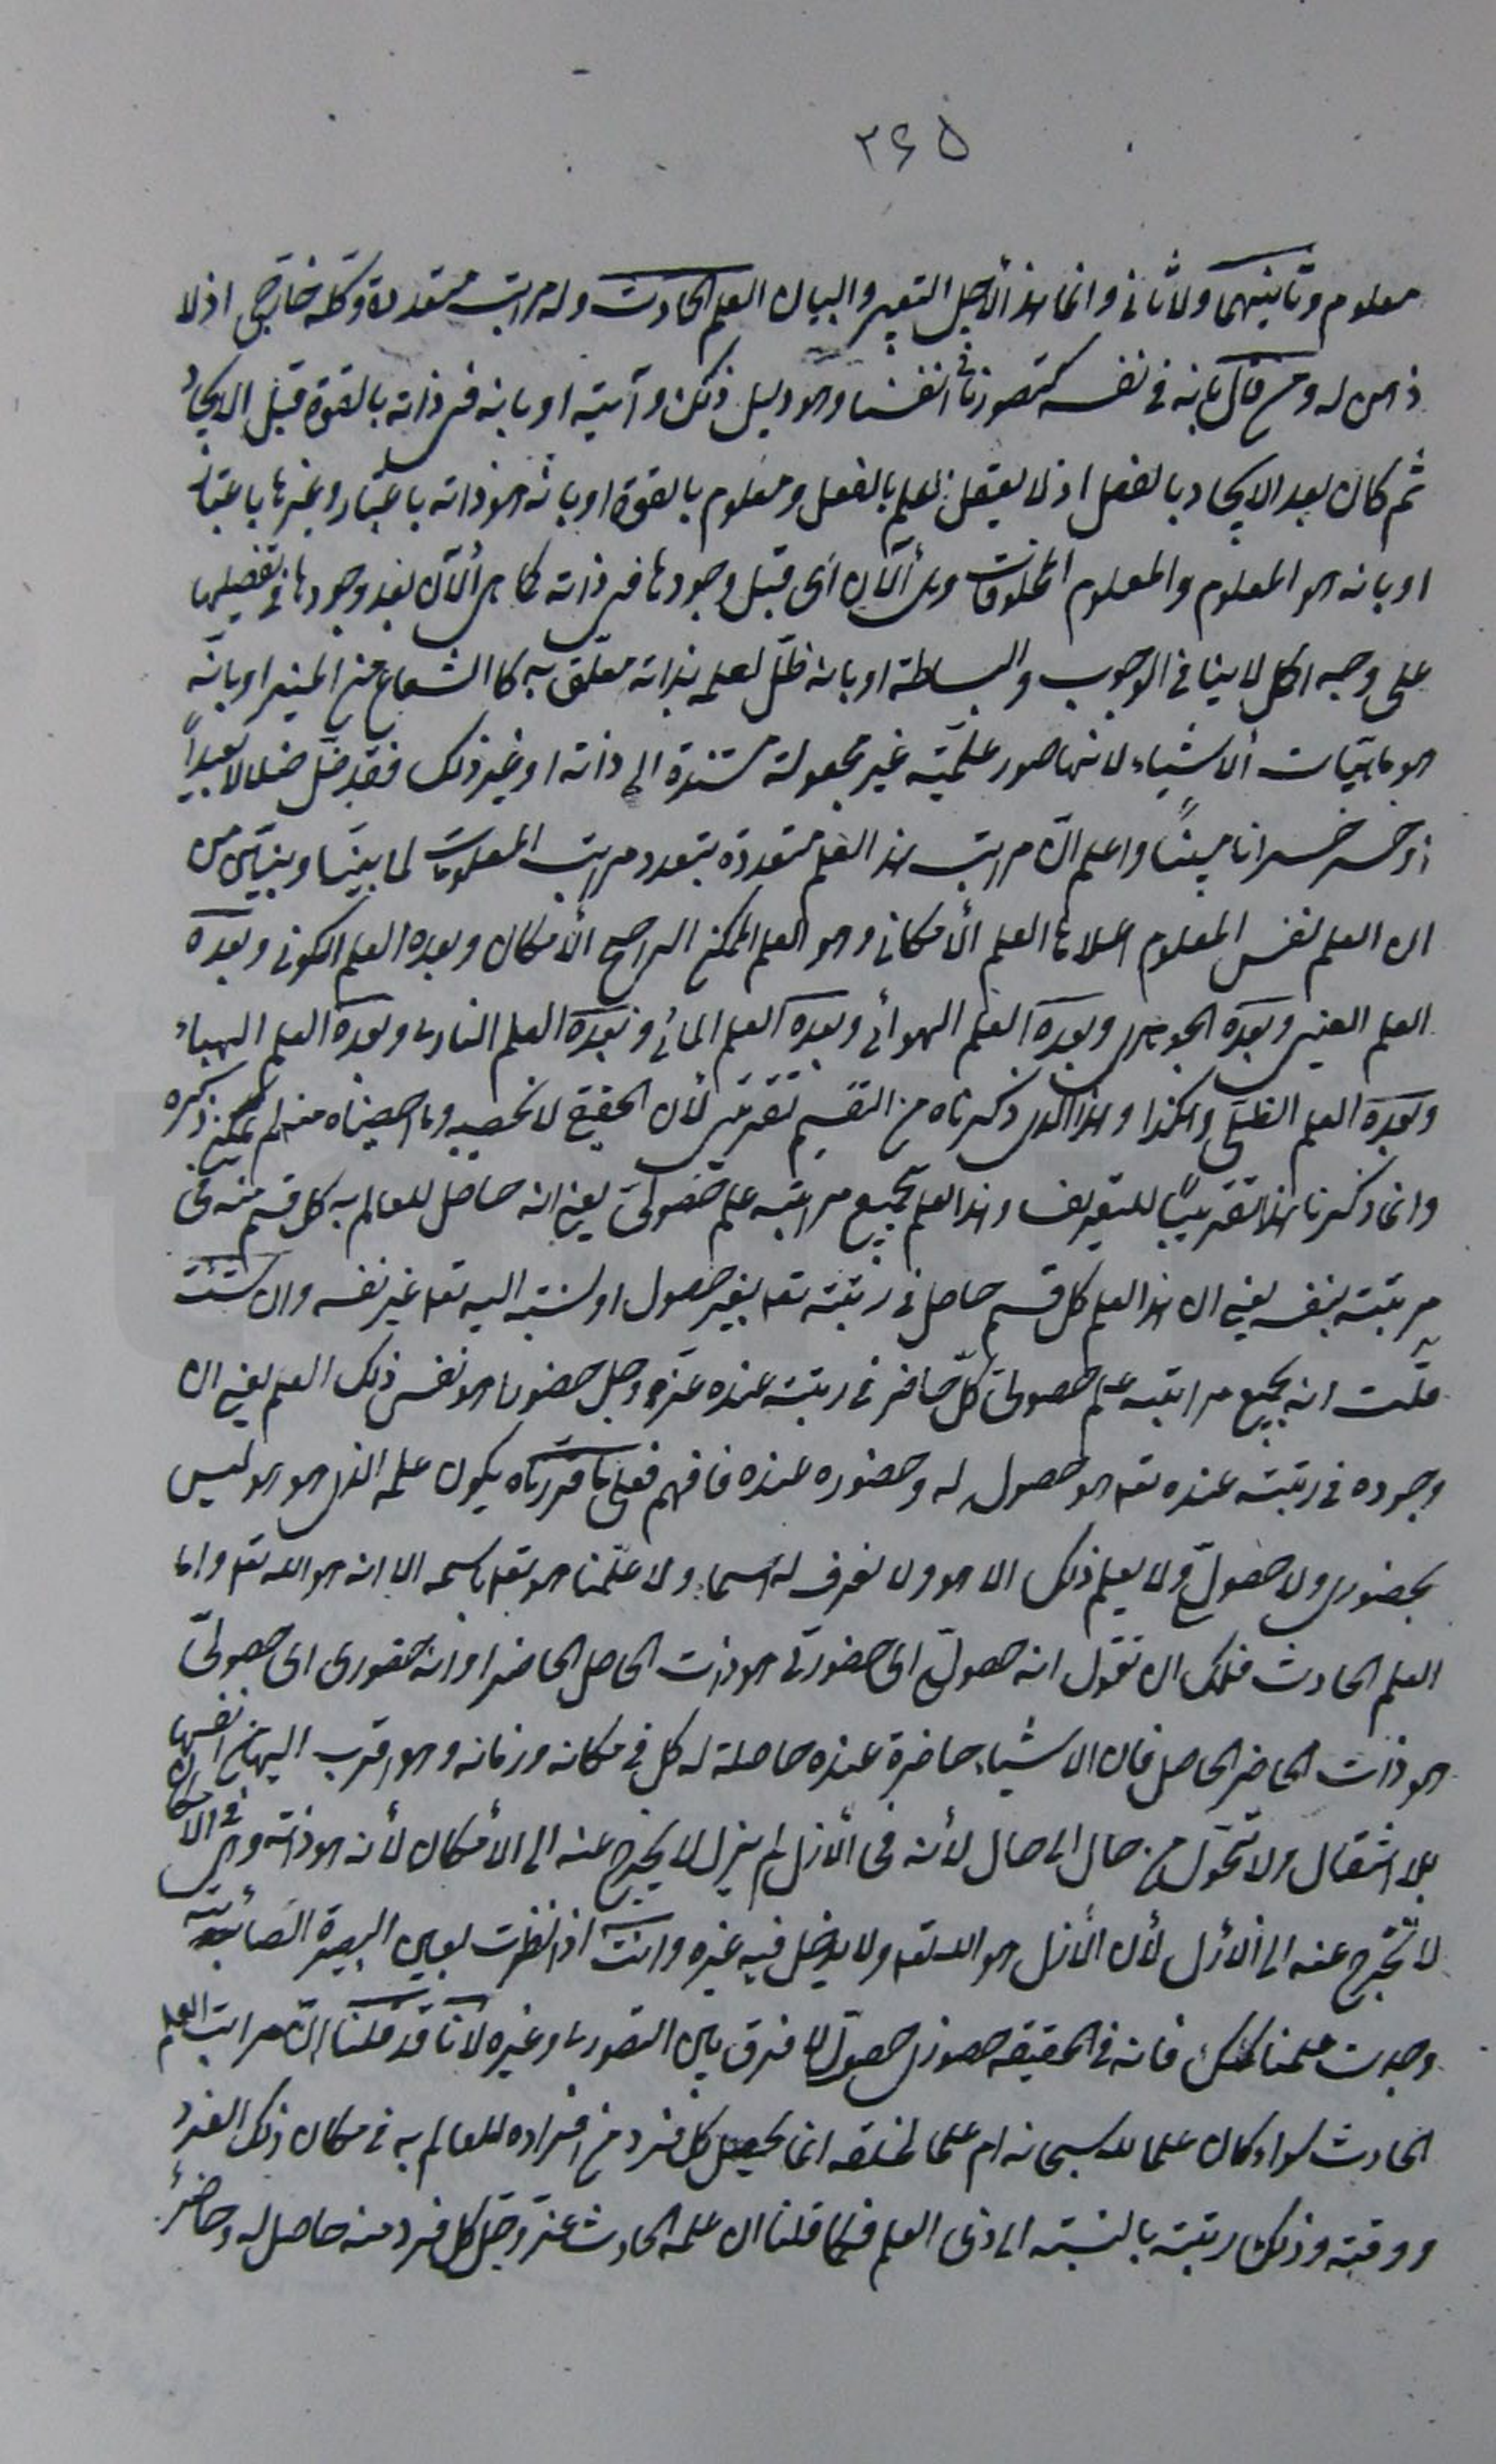 ٢۶۵
معلوم وثانيهما ولا ثاني وانما هذا لأجل التعبير والبيان العلم الحادث وله مراتب متعددة وكله خارجي اذ لا
ذهن له ومن قال بانه في نفسه كتصورنا في انفسنا وهو دليل ذلك وآيته او بانه في ذاته بالقوة قبل الايجاد
ثم كان بعد الايجاد بالفعل اذ لا يعقل علم بالفعل ومعلوم بالقوة او بانه هو ذاته باعتبار وغيرها باعتبار
او بانه هو المعلوم والمعلوم المخلوقات وهي ألآن اى قبل وجودها في ذاته كما هي ألآن بعد وجودها في تفصيلها
على وجه اكمل لا ينافي الوجوب والبساطة او بانه ظلّ لعلمه بذاته معلّق به كالشعاع من المنير او بانّه
هو ماهيّات ألاشياء لانها صور علميّة غير مجعولة مستندة الى ذاته او غير ذلك فقد ضلّ ضلالا بعيداً
وخسر خسرانا مبيناً واعلم انّ مراتب هذا العلم متعددة بتعدد مراتب المعلومات لما بيّنا ونبيّن من
ان العلم نفس المعلوم اعلاها العلم ألامكاني وهو العلم الممكن الراجح ألامكان وبعده العلم الكوني وبعده
العلم العيني وبعده الجوهري وبعده العلم الهوائي وبعده العلم المائي وبعده العلم الناري وبعده العلم الهبائي
وبعده العلم الظلّي وهكذا وهذا الذي ذكرناه من التقسيم تقريبي لأن الحقيقي لا نحصيه وما احصيناه منه لم يمكن ذكره
وانما ذكرنا هذا تقريباً للتعريف وهذا العلم بجميع مراتبه علم حضوليّ يعني انه حاصل للعالم به كل قسم منه في
مرتبته بنفسه يعني ان هذا العلم كل قسم حاصل في رتبته تعه بغير حصول او نسبة اليه تعه غير نفسه وان شئت
قلت انه بجميع مراتبه علم حصوليّ كلّ حاضر في رتبته عنده عزّ وجل حضورا هو نفس ذلك العلم يعني ان
وجوده في رتبته عنده تعه هو حصول له وحضوره عنده فافهم فعلى ما قررناه يكون علمه الذي هو هو ليس
بحضوري ولا حصولي ولا يعلم ذلك الا هو ولا نعرف له اسما ولا علّمنا هو تعه باسمه الا انه هو الله تعه واما
العلم الحادث فلك ان تقول انه حصوليّ اى حضوريّ هو ذات الحاصل الحاضر او انه حضوري اى حصوليّ
هو ذات الحاضر الحاصل فان الاشياء حاضرة عنده حاصلة له كل في مكانه وزمانه وهو اقرب اليها من انفسها
بلا انتقال ولا تحوّل من حال الى حال لأنه في ألازل لم يزل لا يخرج عنه الى الأمكان لأنه هو ذاته وهي في الامكان
لا تخرج عنه الى ألازل لأن ألازل هو الله تعه ولا يدخل فيه غيره وانت اذا نظرت بعين البصيرة الصائبة
وجدت علمنا كذلك فانه في الحقيقة حضوري حصوليّ لا فرق بين التصوري وغيره لانا قد قلنا انّ مراتب العلم
الحادث سواء كان علما لله سبحانه ام علما لخلقه انما يحصل كل فرد من افراده للعالم به في مكان ذلك الفرد
ووقته وذلك رتبته بالنسبة الى ذى العلم فكما قلنا ان علمه الحادث عزّ وجلّ كل فرد منه حاصل له وحاضر